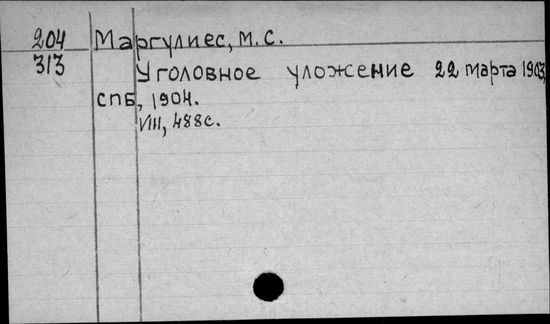 204 Маргулиес, М.С.
313 Уголовное уложение 22 марта 1903,
СПБ, 1904.
VIII, 488с.